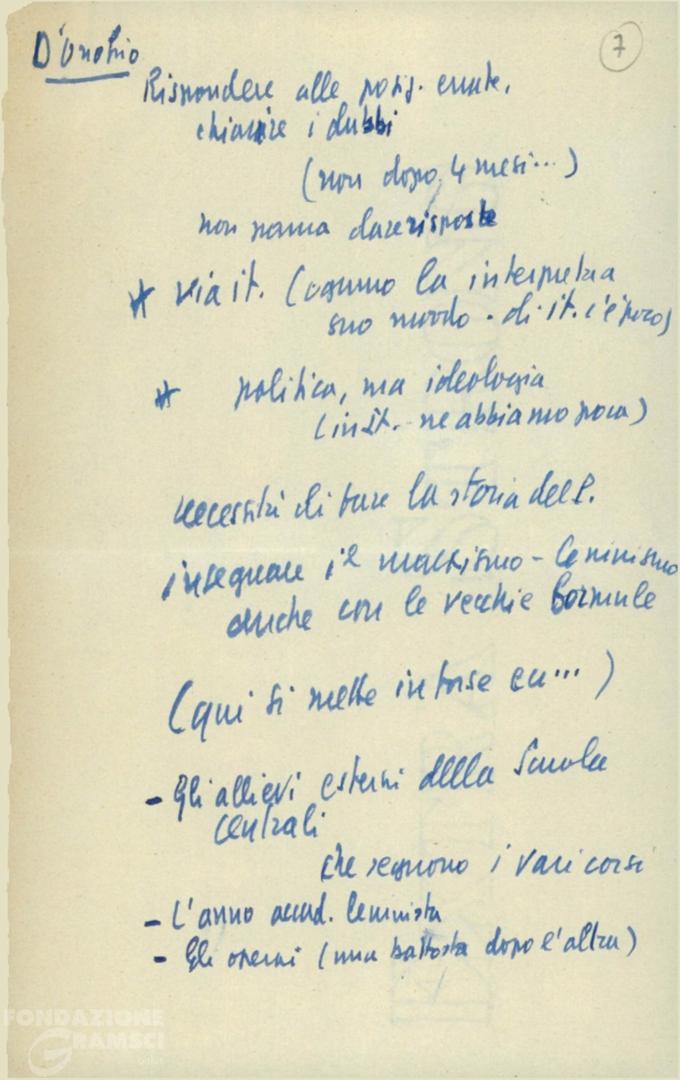 D'Onofrio
7
Rispondere alle posiz. errate,
chiarire i dubbi
(non dopo 4 mesi...)
non dare risposte
* via it. (ognuno la interpreta
suo modo - di it. c'è poco)
* politica, ma ideologia
(in It. ne abbiamo poca)
necessità di fare la storia del P.
insegnare il marxismo-leninismo
anche con le vecchie formule
(qui si mette in forse ...)
- Gli allievi esterni della Scuola
centrali
che seguono i vari corsi
- L'anno accad. leninista
- Gli operai (una battosta dopo l'altra)
FONDAZIONE
GRAMSCI